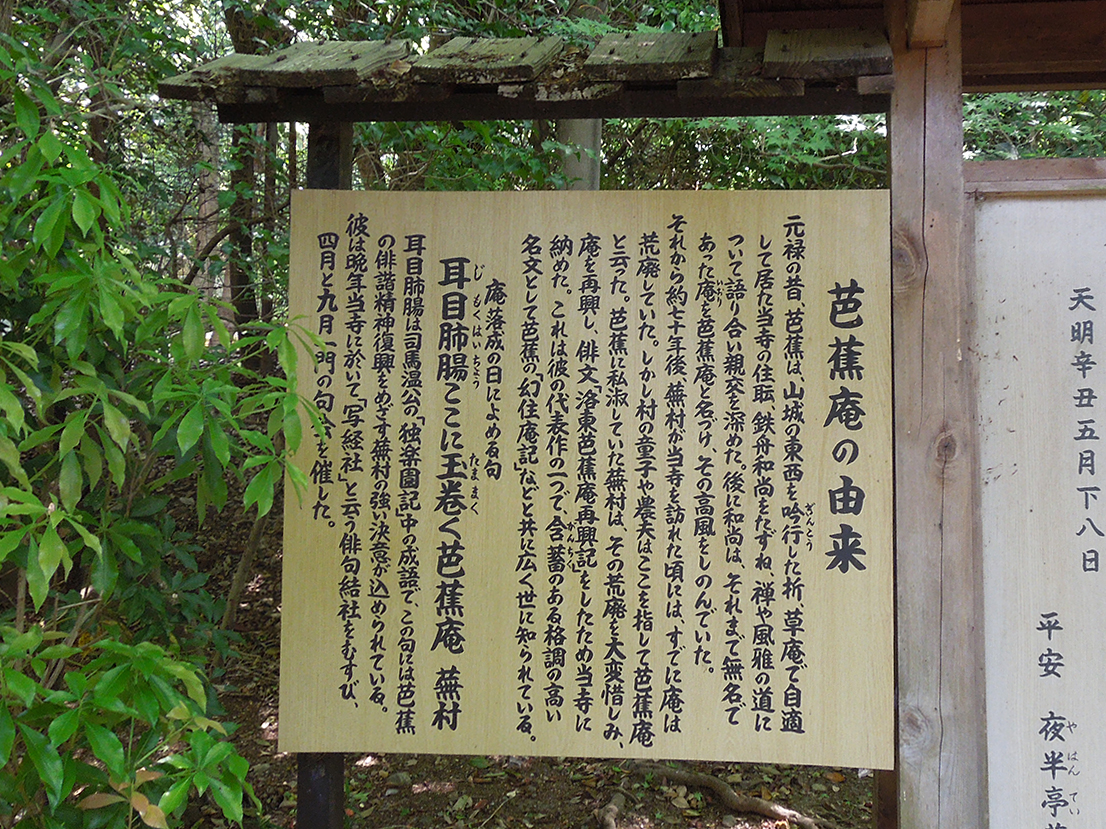 芭蕉庵の由来
ぎんこう
元禄の昔、芭蕉は、山城の東西を吟行した折、草庵で自適
して居た当寺の住耺、鉄舟和尚をたずね、禅や風雅の道に
ついて語り合い親交を深めた。後に和尚は、それまで無名で
いおり
あった庵を芭蕉庵と名づけ、その高風をしのんでいた。
それから約七十年後、蕪村が当寺を訪れた頃には、すでに庵は
荒廃していた。しかし村の童子や農夫はここを指して芭蕉庵
と云った。芭蕉に私淑していた蕪村は、その荒廃を大変惜しみ、
庵を再興し、俳文「洛東芭蕉庵再興記」をしたため当寺に
がんちく
納めた。これは彼の代表作の一つで、含蓄のある格調の高い
名文として芭蕉の「幻住庵記」などと共に広く世に知られている。
庵落成の日によめる句
じもくはいちょう たままく
耳目肺腸ここに玉巻く芭蕉庵 蕪村
耳目肺腸は司馬温公の「独楽園記中の成語で、この句には芭蕉
の俳諧精神復興をめざす蕪村の強い決意が込められている。
彼は晩年当寺に於いて「写経社」と云う俳句結社をむすび、
四月と九月一門の句会を催した。
天明辛丑五月下八日
やはんてい
平安 夜半亭